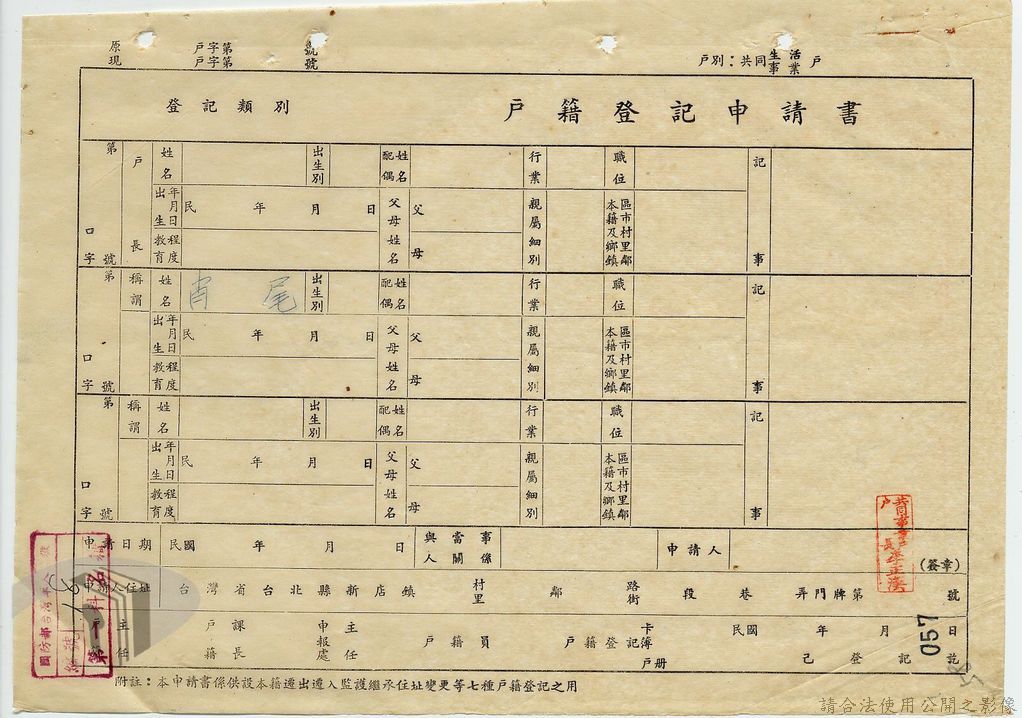 原 戶字第 號
現 戶字第 號
戶別：共同生活事業戶
登記類別 戶籍登記申請書
第 戶 姓名 出生別 配偶姓名 行業 職位 記
出生年月日 民 年 月 日 父母姓名 父 親屬細別 本籍及鄉鎮區市村里鄰
口 字 號 長 教育程度 母 事
第 稱謂 姓名 肯尾 出生別 配偶姓名 行業 職位 記
出生年月日 民 年 月 日 父母姓名 父 親屬細別 本籍及鄉鎮區市村里鄰
口 字 號 教育程度 母 事
第 稱謂 姓名 出生別 配偶姓名 行業 職位 記
出生年月日 民 年 月 日 父母姓名 父 親屬細別 本籍及鄉鎮區市村里鄰
口 字 號 教育程度 母 事
申請日期 民國 年 月 日 與當事人關係 申請人 (簽章)
共同事業戶
戶長
申請人住址 台灣省台北縣新店鎮 村里 鄰 路街 段 巷 弄門牌第 號
主任 戶籍課長 申報處主任 戶籍員 戶籍登記 卡簿 戶册 民國 年 月 日 已登記訖
057
國防部
編號
第一科
附註：本申請書係供設本籍遷出遷入監護繼承住址變更等七種戶籍登記之用
請合法使用公開之影像